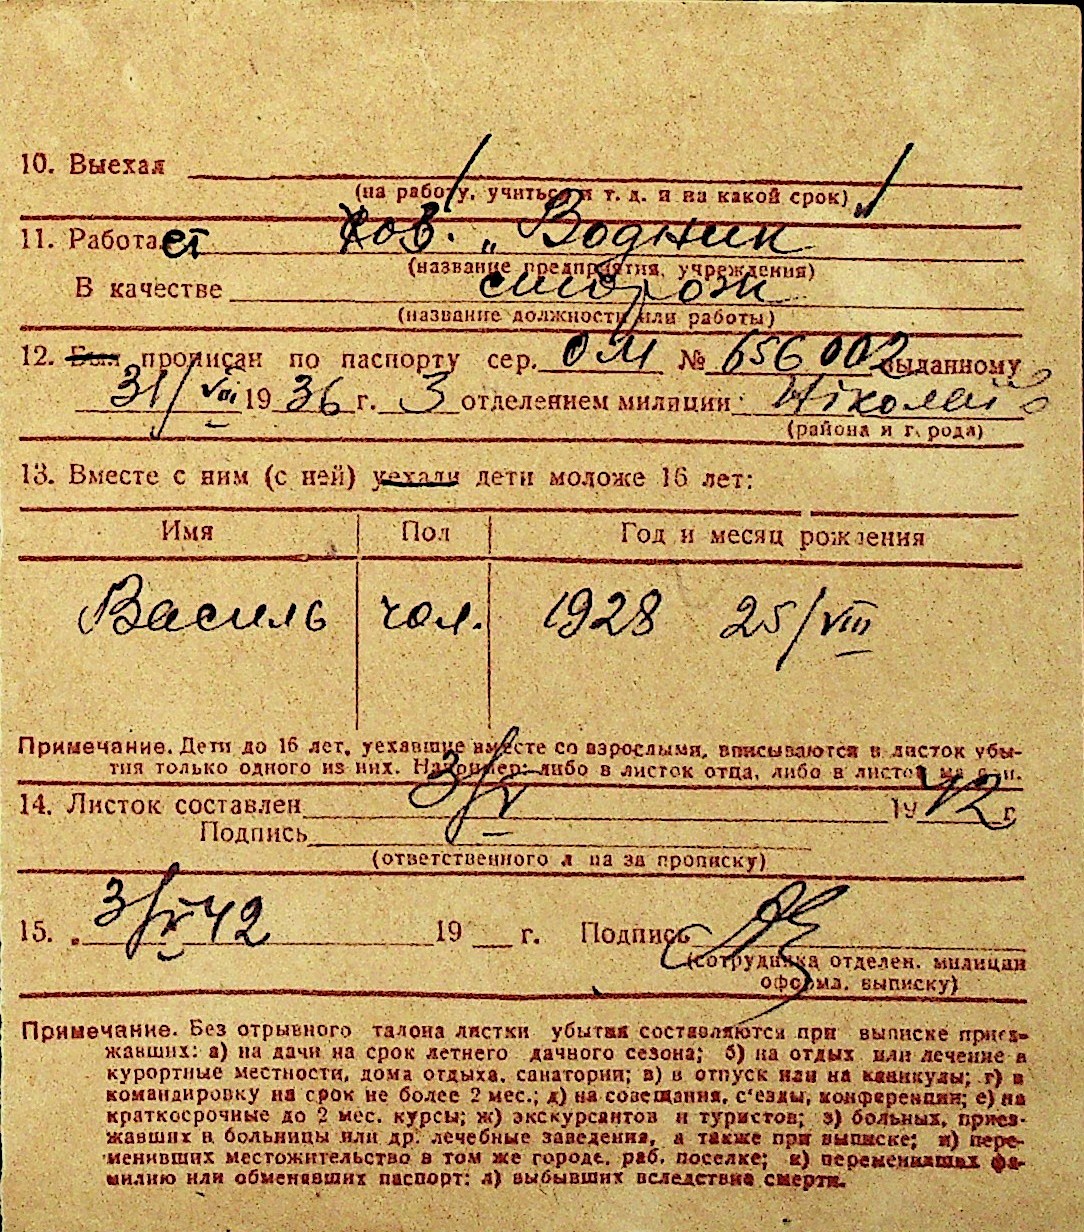 10. Выехал
(на работу, учиться и т. д. и на какой срок)
11. Работает Ков. „Водник
(название предприятия, учреждения)
В качестве сторож
(название должности или работы)
12. Был прописан по паспорту сер. ОМ № 656002 выданному
31/VIII 1936 г. 3 отделением милиции Ніколаїв
(района и города)
13. Вместе с ним (с ней) уехали дети моложе 16 лет:
Имя Пол Год и месяц рождения
Василь чол. 1928 25/VIII
Примечание. Дети до 16 лет, уехавшие вместе со взрослыми, вписываются в листок убы-
тия только одного из них. Например: либо в листок отца, либо в листок матери.
14. Листок составлен 3/V 1942 г
Подпись
(ответственного лица за прописку)
15. 3/V 42 19 г. Подпись
(сотрудника отделен. милиции
оформл. выписку)
Примечание. Без отрывного талона листки убытия составляются при выписке приез-
жавших: а) на дачи на срок летнего дачного сезона; б) на отдых или лечение в
курортные местности, дома отдыха, санатории; в) в отпуск или на каникулы; г) в
командировку на срок не более 2 мес.; д) на совещания, с'езды, конференции; е) на
краткосрочные до 2 мес. курсы; ж) экскурсантов и туристов; з) больных, приез-
жавших в больницы или др. лечебные заведения, а также при выписке; и) пере-
менивших местожительство в том же городе, раб. поселке; к) переменивших фа-
милию или обменявших паспорт; л) выбывших вследствие смерти.